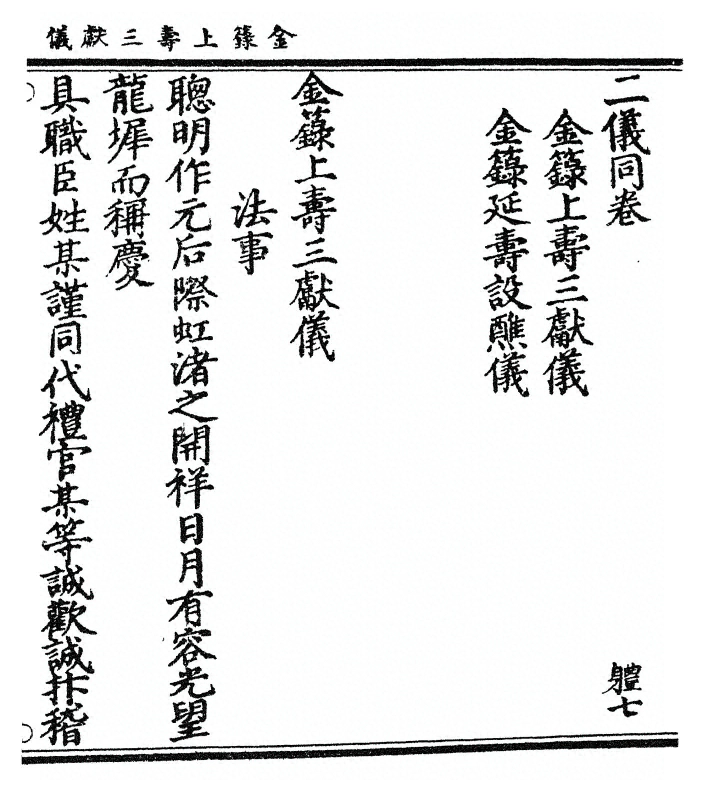 金籙上壽三獻儀
二儀同卷 體七
金籙上壽三獻儀
金籙延壽設醮儀
金籙上壽三獻儀
法事
聰明作元后際虹渚之開祥日月有容光望
龍墀而稱慶
具職臣姓某謹同代禮官某等誠歡誠抃稽